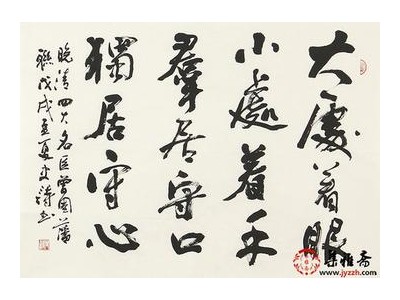 大處着眼
小處着手
羣居守口
獨居守心
晚清四大名臣曾國藩
聯戊戌孟夏史詩書
集雅斋
www.jyzzh.com